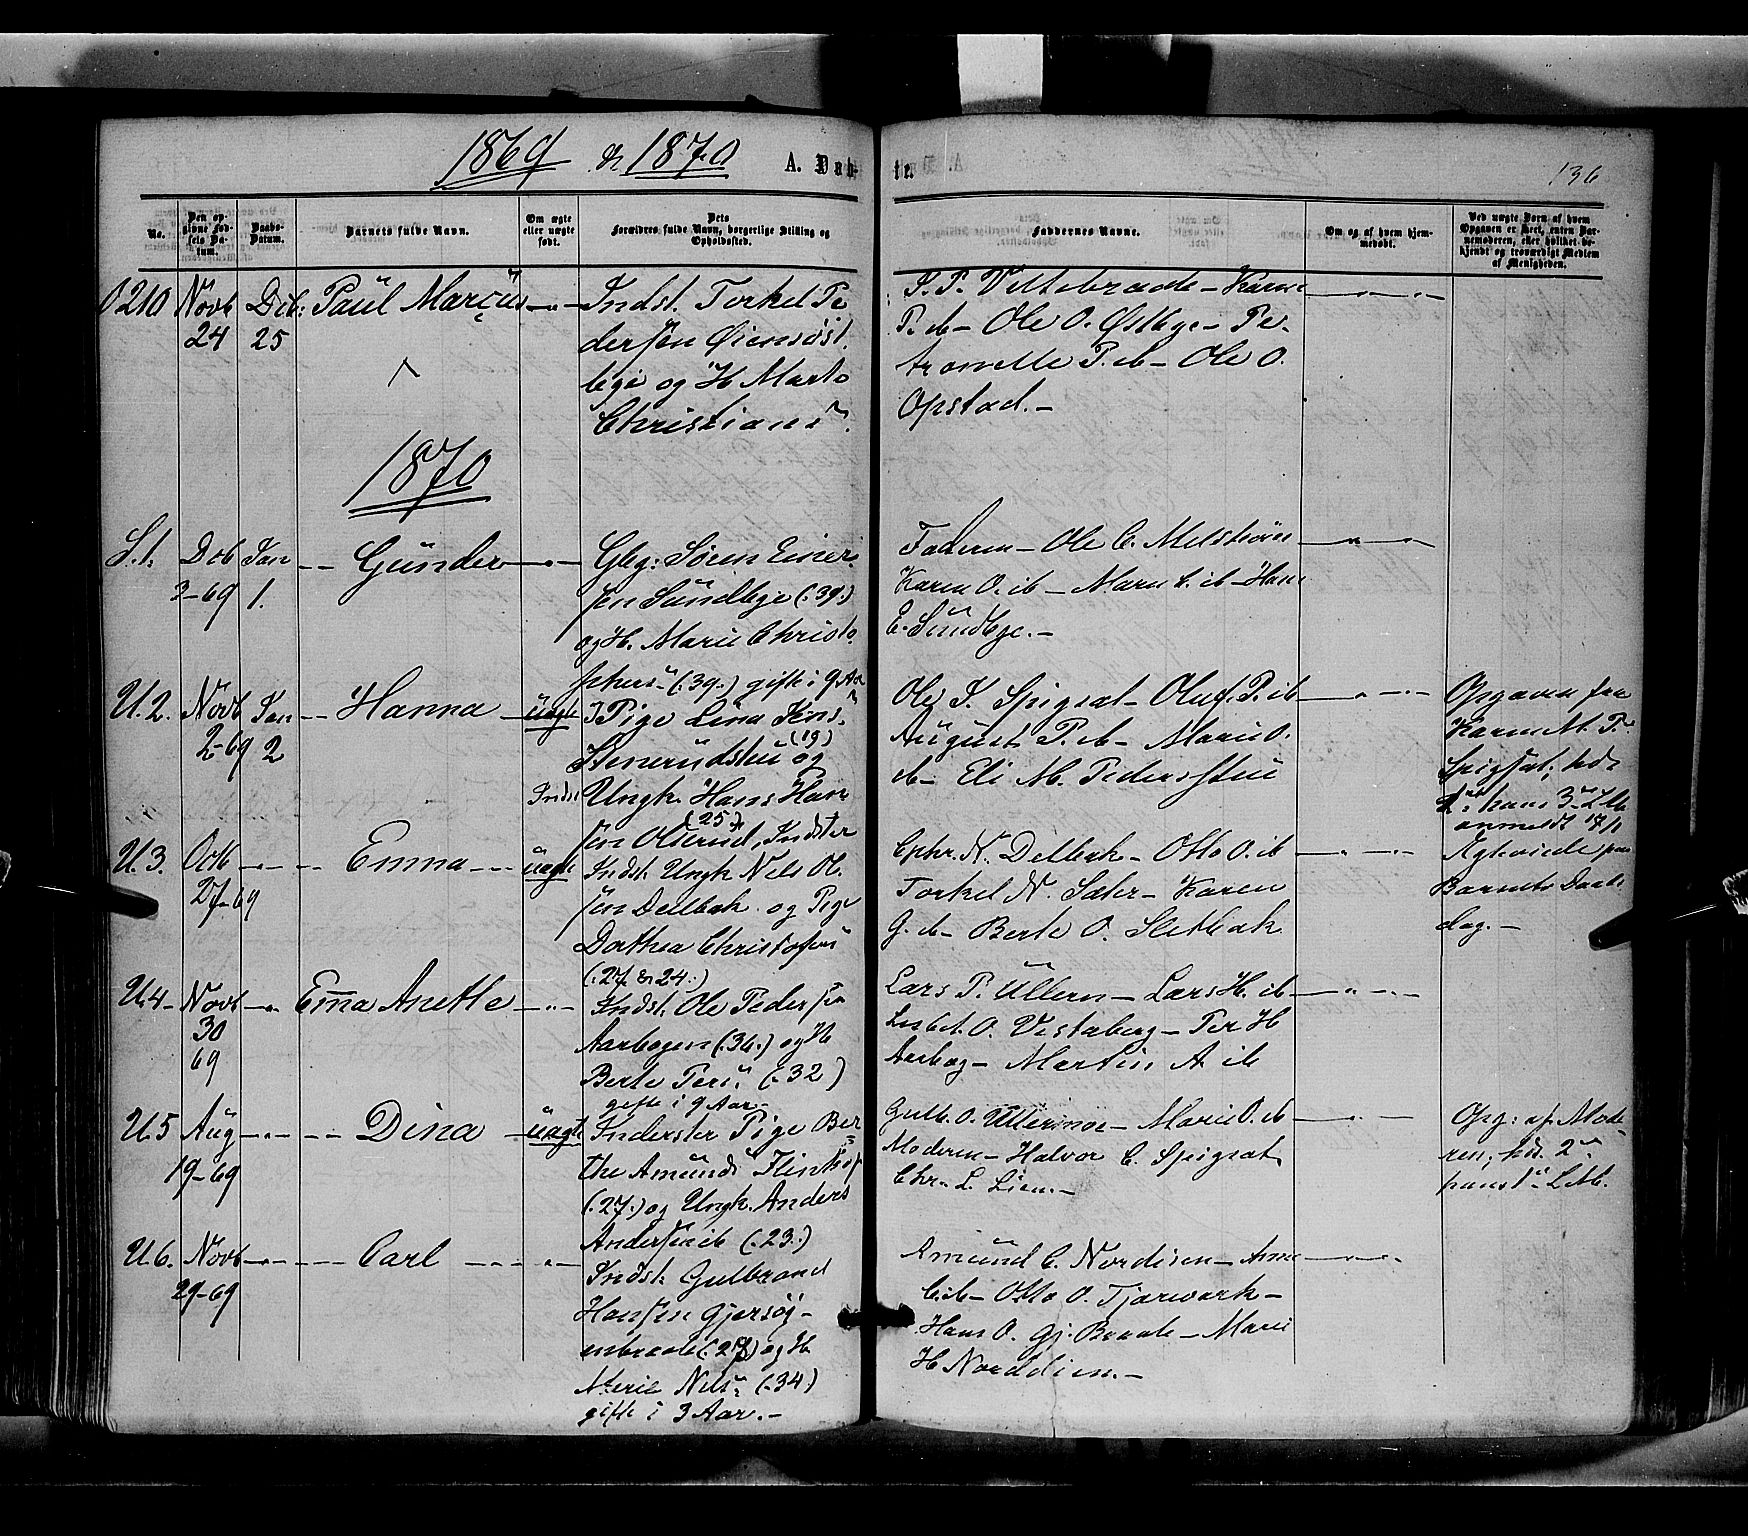 1869 & 1870 A. Døb-
te.
136
No.
Den op-
givne Fød-
sels Da-
tum.
Daabs-
Datum.
Barnets fulde Navn.
Om ægte
eller uægte
født.
Dets
Forældres fulde Navn, borgerlige Stilling og
Opholdssted.
Faddernes Navne.
Om og af hvem hjem-
medøbt.
Ved uægte Børn af hvem
Opgaven er skeet, enten Bar-
nemoderen, eller hvilket be-
kjendt og troværdigt Medlem
af Menigheden.
O 210 Novb 24 Deb: 25 Paul Marcus
Indst. Torkel Pe
dersen Øiensøst
bye og H Marte
Christians
P. P. Vittebraade - Karen
P. ib - Ole O. Østbye - Pe-
tronelle P. ib - Ole O.
Opstad. -
1870
S. 1. Deb 3-69 Jan 1. Gunder
Gbg: Søren Einer
sen Sundbye (39.)
og H. Marie Christo
phers (39.) gifte i 9 Aar
Faderen - Ole C. Melstrøm
Karen O. ib - Maren C. ib - Hans
E. Sundbye. -
U. 2. Novb 2-69 Jan 2 Hanna uægte
Pige Lina Jens
Stenerudstu og
(19)
Indst Ungk. Hans Han
(25)
sen Olerud, Indster
Ole J. Spigsæt - Oluf P. ib
August P. ib - Marie O.
ib - Eli M. Pedersstu
Opgaven fra
Karen M. P.
Spigsæt; hds
2 hans 3 L.M.
anmeldt 17/1
U. 3. Octb 27-69 Emma uægte
Indst. Ungk Nils Ol.
sen Delbæk og Pige
Dorthea Christofers
(27 & 24.)
Ephr. N. Delbæk - Otto O. ib
Torkel N. Sæter - Karen
G. ib - Berte O. Sletbæk
Ægteviede paa
Barnets Daabs
dag. -
U. 4 - Novb 30 69 Emma Anette
Indst. Ole Peder sen
Aarbogen (36.) og H
Berte Pers (32)
gifte i 9 Aar. -
Lars P. Ullern - Lars H. ib
Lisbet O. Vestaberg - Per H
Aarbog - Martin A ib
U. 5 Aug 19-69 Dina uægte
Inderster Pige Ber
the Amunds
(27.) og Ungk. Anders
Andersen ib (23.)
Gulb. O. Ullermoe - Marie O. ib
Moderen - Halvor C. Spigsæt
Chr. L. Lien. -
Opg: af Mode
ren; hds. 2
hans 1 L.M.
U. 6. Novb 29-69 Carl
Indst. Gulbrand
Hansen Gjersøg-
enbraate (28) og H
Marie Nils (34)
gifte i 3 Aar. -
Amund C. Nordisen - Anne
C. ib - Otto O. Tjærværk -
Hans O. Gj. Braate - Marie
H Norddien. -